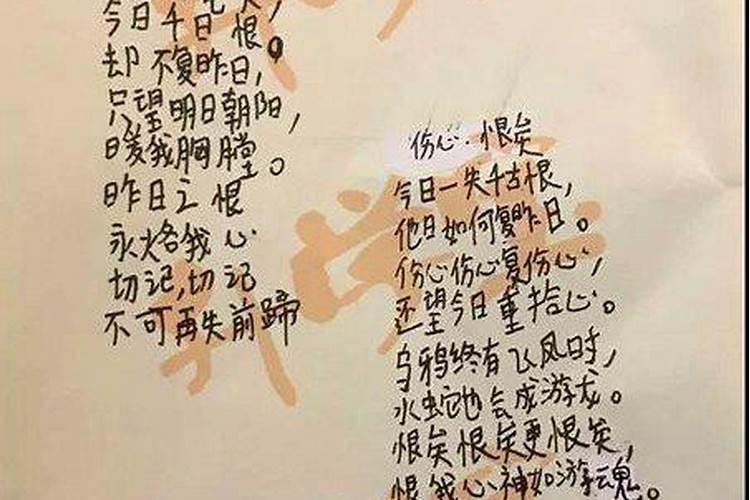 今日千日恨。
却不复昨日，
只望明日朝阳，
暖我胸膛。
昨日之恨
永烙我心
切记，切记
不可再失前蹄
伤心·恨矣
今日一失千古恨，
他日如何复昨日。
伤心伤心复伤心，
还望今日重拾心。
乌鸦终有飞凤时，
水蛇也会成游龙。
恨矣恨矣更恨矣，
恨我心神如游魂。